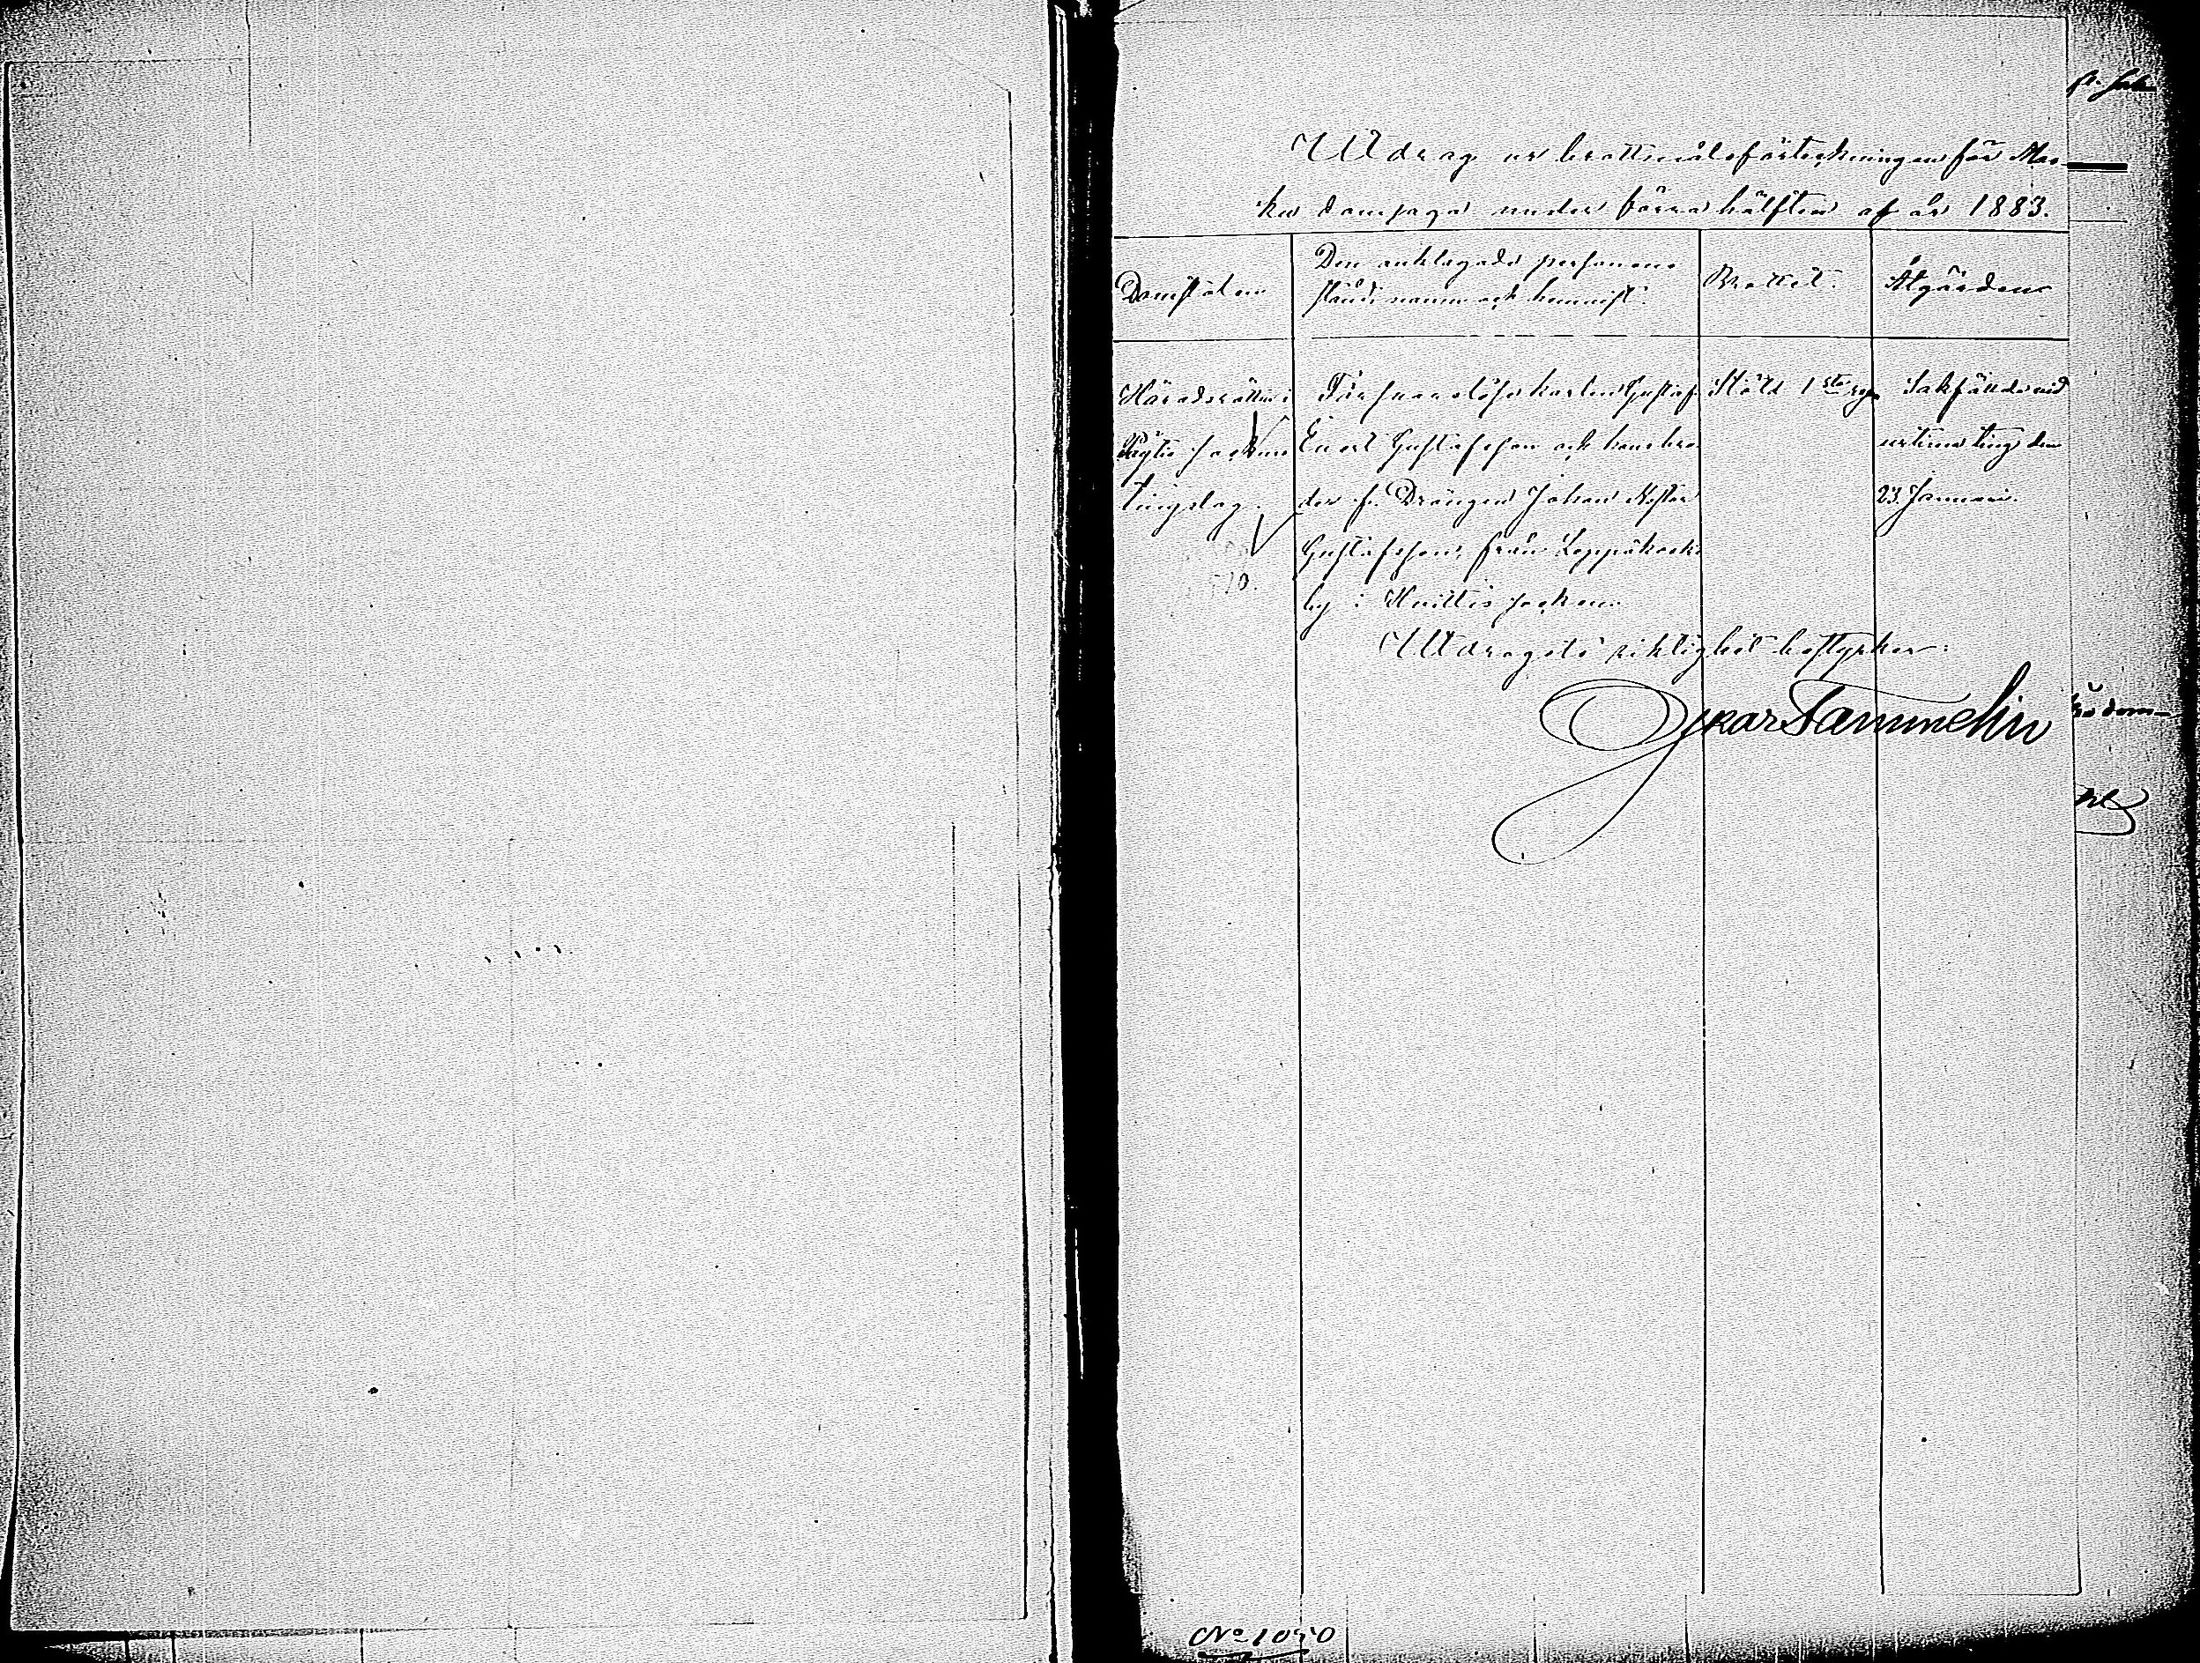 Utdrag ur brottmålsförteckningen för Mas-
ku domsaga under förra hälften af år 1883.
Domstolen
Den anklagade personens
stånd, namn och hemvist.
Brottet.
Åtgärden
Häradsrätten i
socknes
tingslag.
Försvarslöse karlen Gustaf
Enert Gustafsson och hans bro-
der f. Drängen Johan Nestor
Gustafsson, från Loppikoski
by i Huittis socken.
Stöld 1sta resan
Sakfälld vid
urtima ting den
23 Januari.
Utdragets riktighet bestyrker:
Oskar Tammelin
No 1050